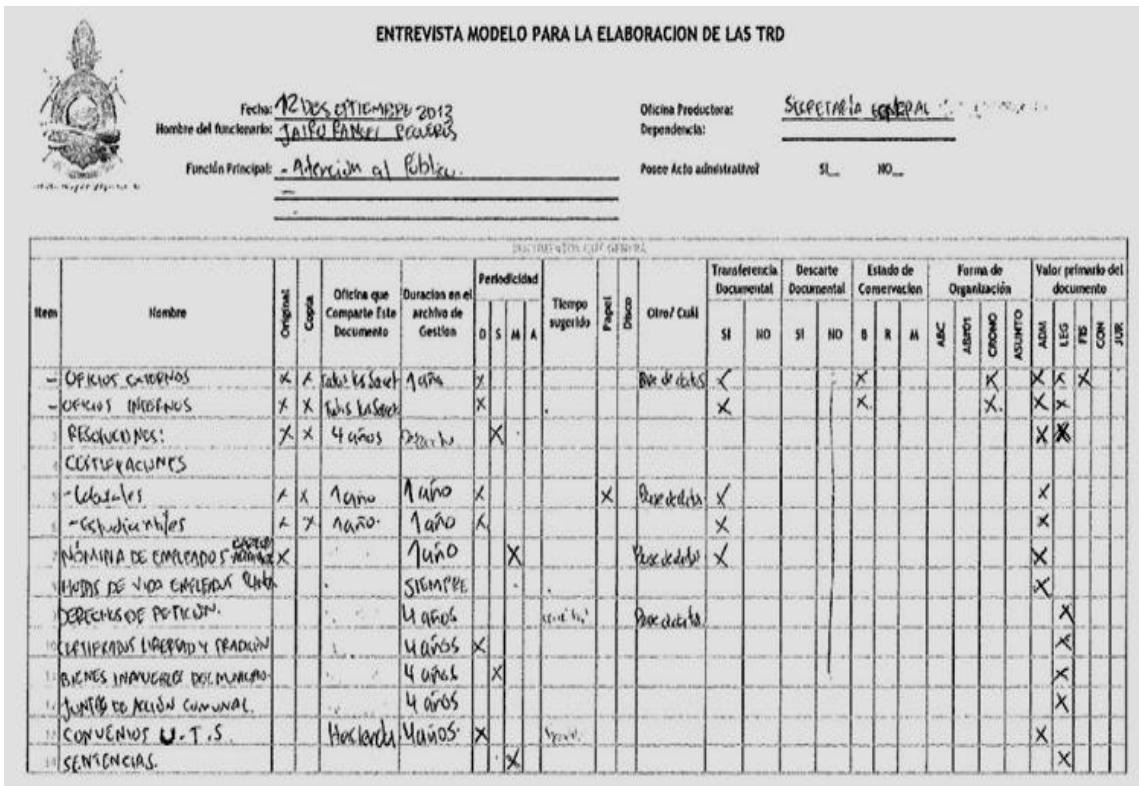 ENTREVISTA MODELO PARA LA ELABORACION DE LAS TRD
Fecha: 12 DE SEPTIEMBRE 2013
Oficina Productora: SECRETARÍA GENERAL
Nombre del funcionario: JAIRO RANGEL
Dependencia:
Función Principal: - Atención al Público.
Posee Acto administrativo? SI__ NO__
DOCUMENTOS QUE GENERA
Item Nombre Original Copia Oficina que Comparte Este Documento Duracion en el archivo de Gestion Periodicidad D S M A Tiempo sugerido Papel Disco Otro/ Cuál Transferencia Documental SI NO Descarte Documental SI NO Estado de Conservacion B R M Forma de Organización ABC CRONO ASUNTO Valor primario del documento ADM LEG FIS CON JUR
- OFICIOS EXTERNOS X X Todas las Secret 1 año X Base de datos X X X X X X
- OFICIOS INTERNOS X X Todas las Secret X X X. X. X X
RESOLUCIONES: X X 4 años X X X
CERTIFICACIONES
- Laborales X X 1 año 1 año X X Base de datos X X
- Estudiantiles X X 1 año. 1 año X X X
NÓMINA DE EMPLEADOS X 1 año X Base de datos X X
HOJAS DE VIDA EMPLEADOS PLANTA SIEMPRE X
DERECHOS DE PETICIÓN. 4 años Base de datos X
10 CERTIFICADOS LIBERTAD Y TRADICIÓN 4 años X X
11 BIENES INMUEBLES DEL MUNICIPIO. 4 años X X
12 JUNTAS DE ACCIÓN COMUNAL. 4 años X
13 CONVENIOS U.T.S. Hacienda 4 años. X X
SENTENCIAS. X X